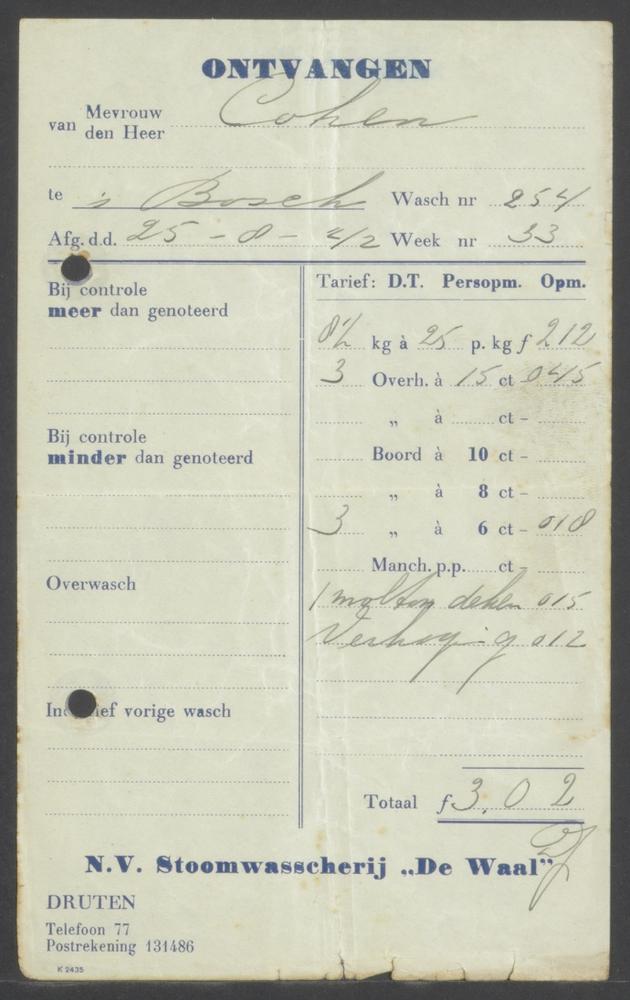 ONTVANGEN
van Mevrouw
den Heer Cohen
te 's Bosch Wasch nr 254
Afg. d.d. 25 - 8 - 42 Week nr 33
Bij controle
meer dan genoteerd
Bij controle
minder dan genoteerd
Overwasch
Inclusief vorige wasch
Tarief: D.T. Persopm. Opm.
8½ kg à 25 p. kg f 2 12
3 Overh. à 15 ct 0 45
„ à ct -
Boord à 10 ct -
„ à 8 ct -
3 „ à 6 ct - 0 18
Manch. p.p. ct -
1 molton deken 0 15
Verhoging 0 12
Totaal f 3,02
N.V. Stoomwasscherij „De Waal"
DRUTEN
Telefoon 77
Postrekening 131486
K 2435